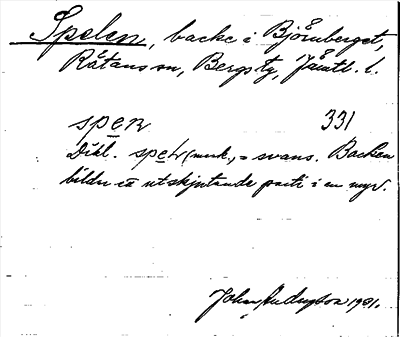 Spelen, backe i Björnberget,
Rätans sn, Bergs tg, Jämtl. l.
spen 331
Dikl. (mask.) = svans. Backen
bildar ett utskjutande parti i en myr.
John 1931.